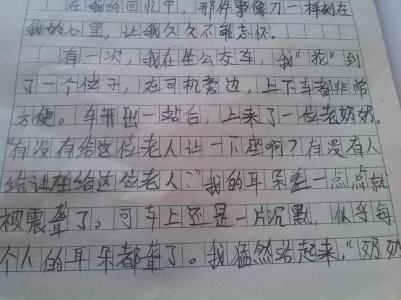 在我的回忆中，那件事像刀一样刻在
我的心里，让我久久不能忘怀。
有一次，我在坐公交车，我"抢"到
了一个位子，在司机旁边，上下车都非常
方便。车开到一站台，上来了一位老奶奶。
"有没有给这位老人让一下座啊？有没有人
给让座给这位老人？"我的耳朵差一点点就
被震聋了。可车上还是一片沉默，似乎每
个人的耳朵都聋了。我猛然站起来，"奶奶